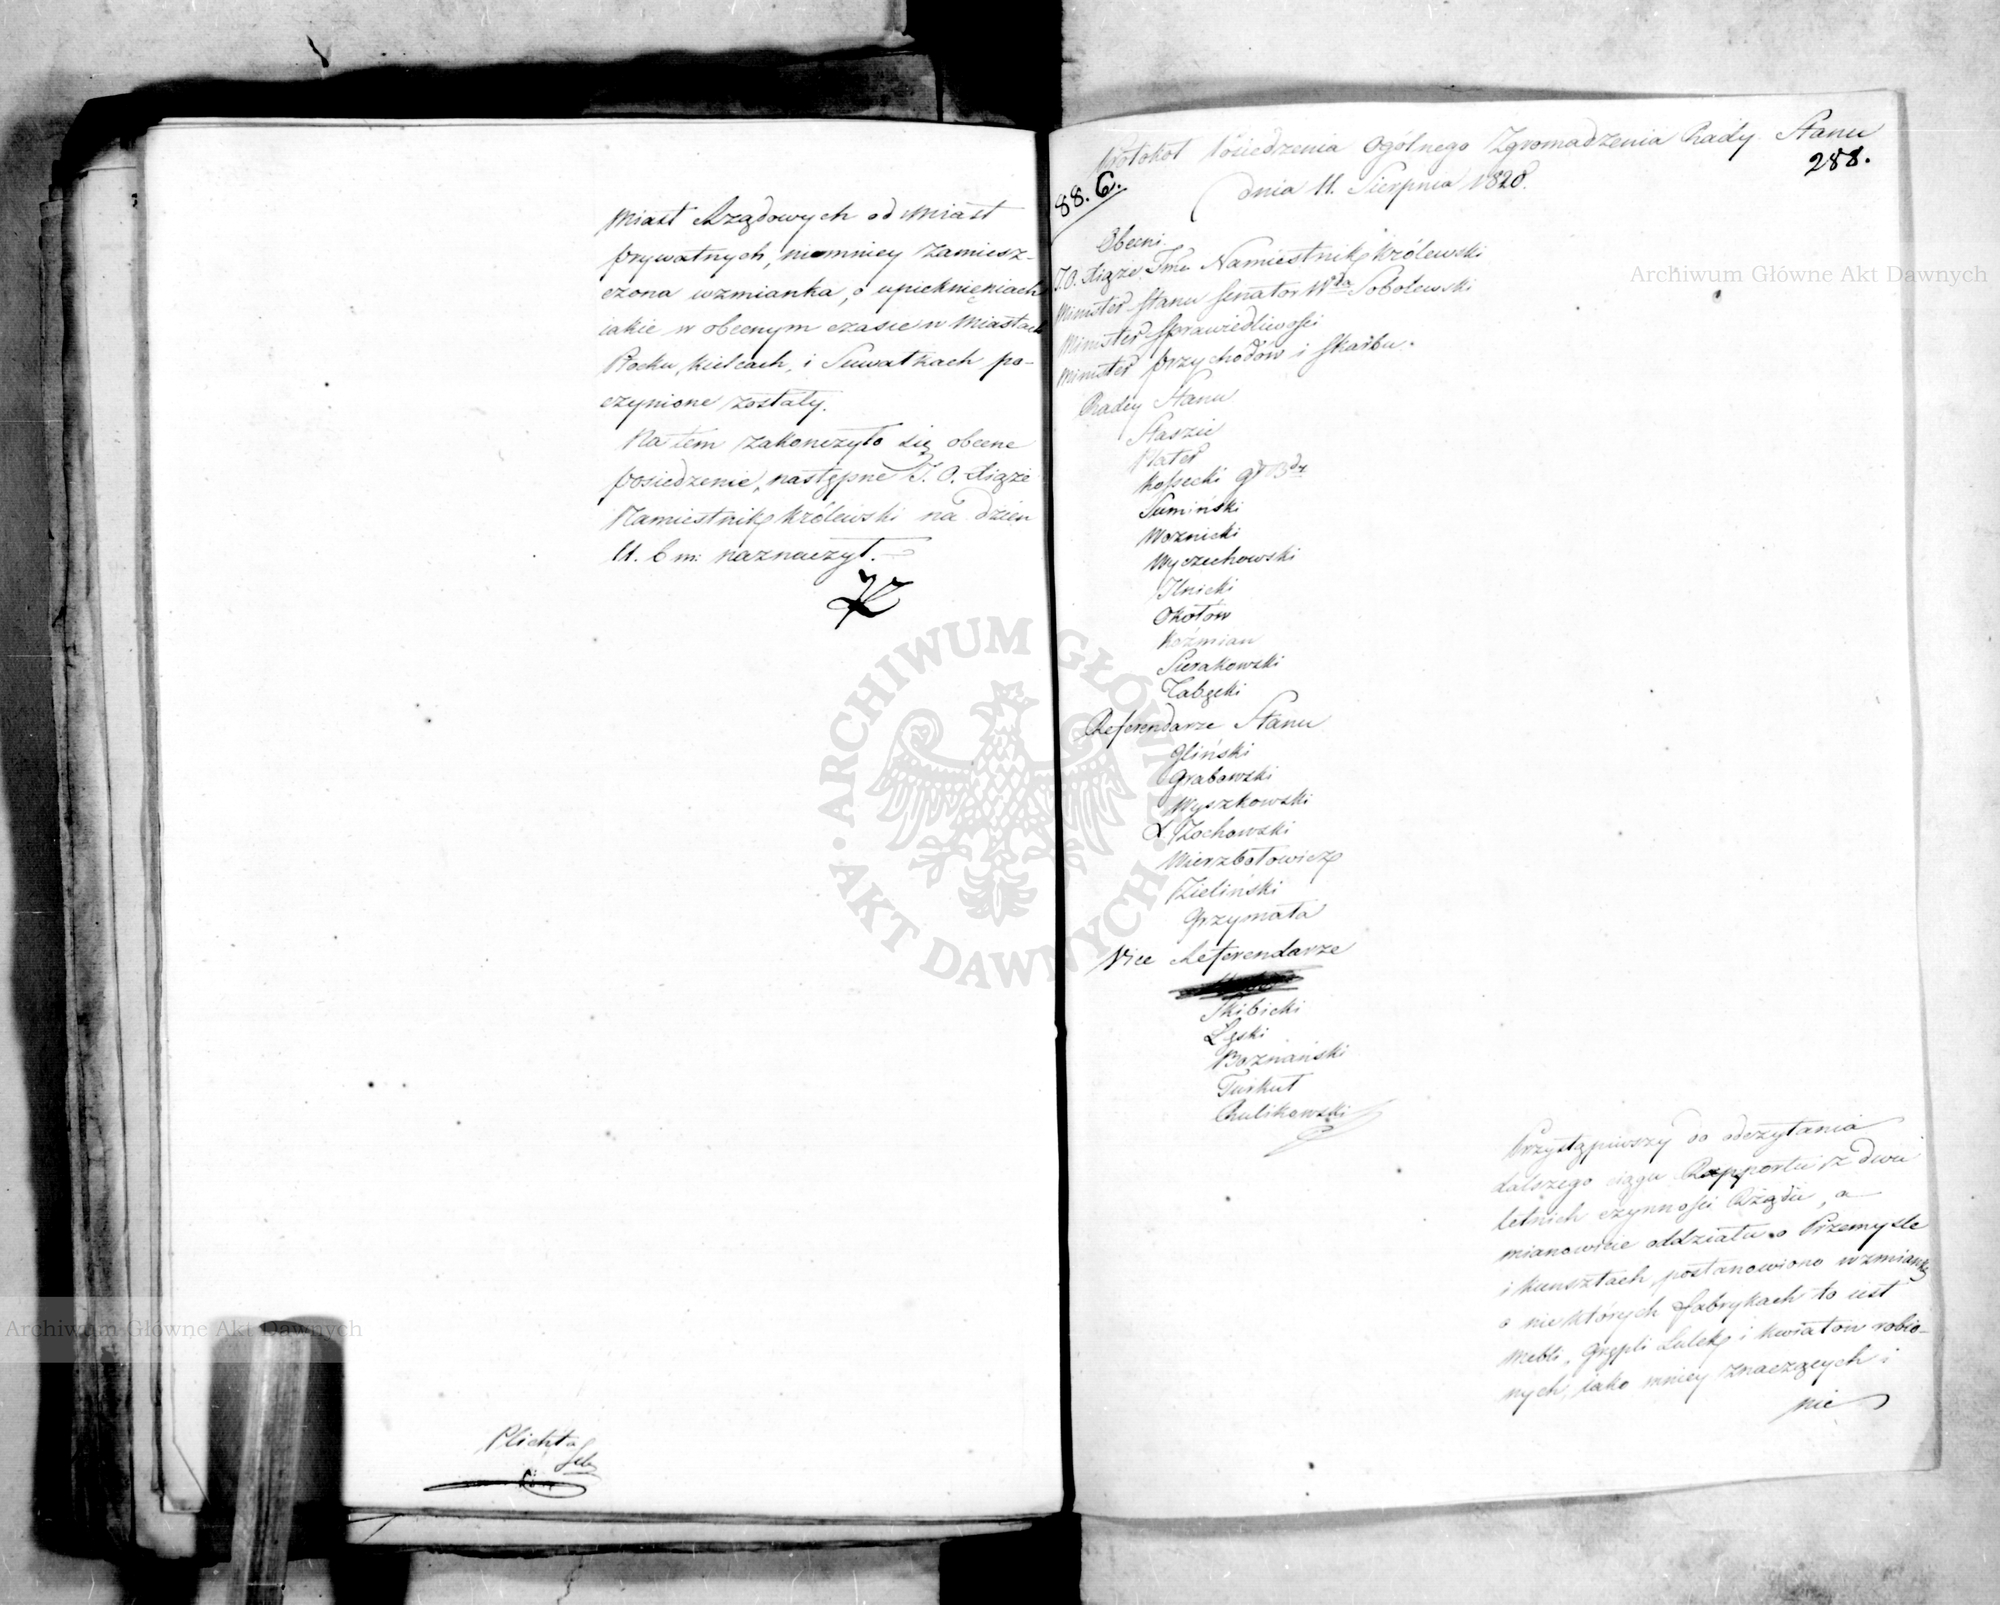 miast Rządowych od miast
prywatnych, niemniey zamiesz-
czona wzmianka, o upięknieniach
iakie w obecnym czasie w miastach
Płocku, Kielcach, i Suwałkach po-
czynione zostały.
Na tem zakończyło się obecne
posiedzenie, następne J. O. Xiąże
Namiestnik Królewski na dzień
11. b m: naznaczył.
Plichta
Protokół Posiedzenia Ogólnego Zgromadzenia Rady Stanu
288.
dnia 11. Sierpnia 1820.
88. C.
Obecni
J.O. Xiąże Jmć Namiestnik Królewski
Minister Stanu Senator Wda Sobolewski
Minister Sprawiedliwości
Minister Przychodów i Skarbu.
Radcy Stanu
Staszic
Plater
Kossecki
Sumiński
Woznicki
Wyczechowski
Ilnicki
Okołów
Koźmian
Sierakowski
Łabęcki
Referendarze Stanu
Gliński
Grabowski
Wyszkowski
X. Zochowski
Wierzbołowicz
Zieliński
Grzymała
Vice Referendarze
Skibicki
Łęski
Boznański
Turkuł
Rulikowski
Przystąpiwszy do odczytania
dalszego ciągu Rapportu z dwu
letnich czynności Rządu, a
mianowicie oddziału o Przemyśle
i kunsztach, postanowiono wzmiankę
o niektórych fabrykach to iest
mebli, Grępli Lulek i kwiatów robio-
nych, iako mniey znaczących i
nie
Archiwum Główne Akt Dawnych
Archiwum Główne Akt Dawnych
ARCHIWUM GŁÓWNE · AKT DAWNYCH ·